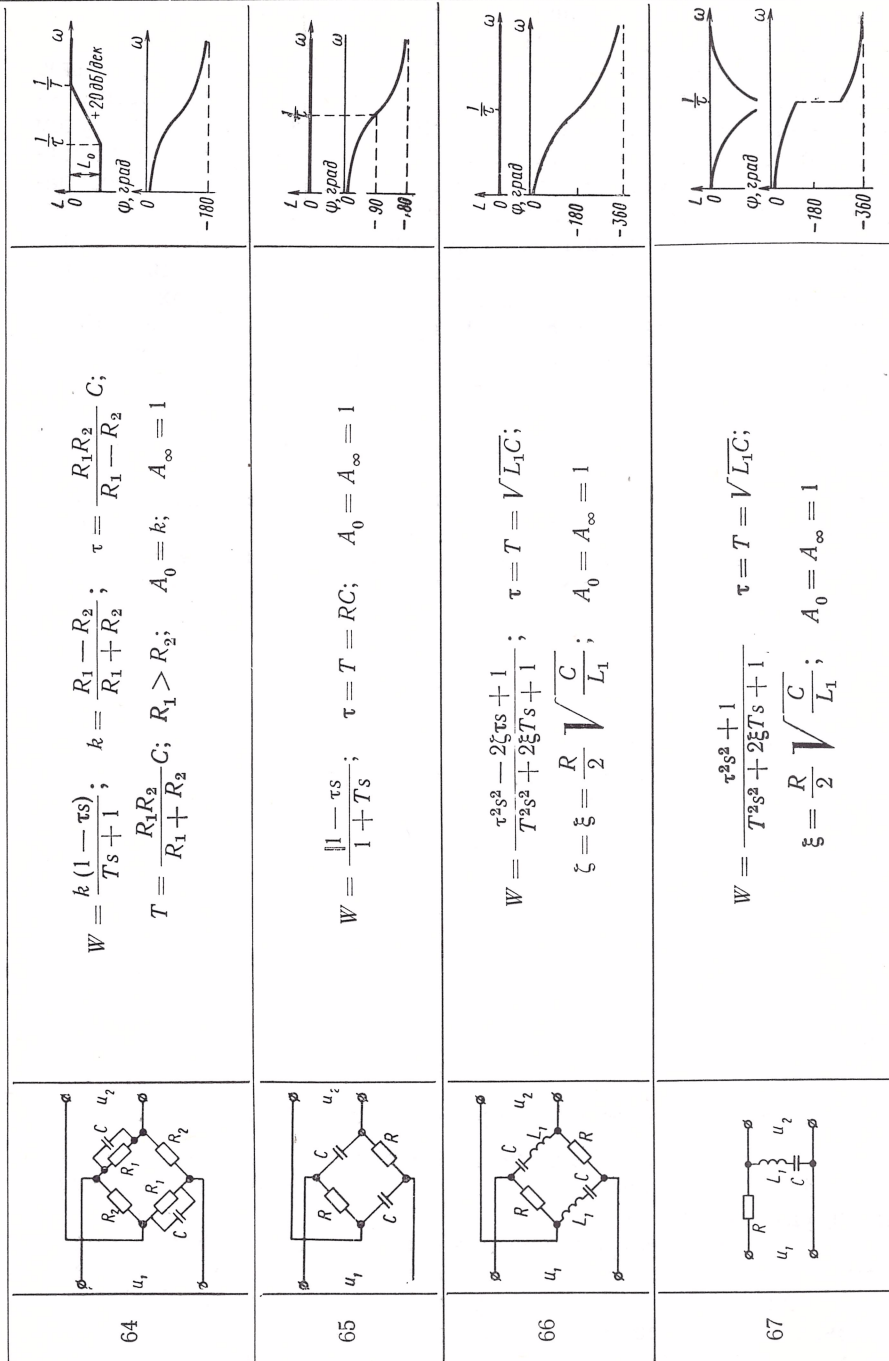 64
u₁
R₂
C
R₁
R₁
C
R₂
u₂
W = k (1 − τs) / Ts + 1 ; k = R₁ − R₂ / R₁ + R₂ ; τ = R₁R₂ / R₁ − R₂ C;
T = R₁R₂ / R₁ + R₂ C; R₁ > R₂; A₀ = k; A∞ = 1
L
0
L₀
1/τ
1/T
+20дб/дек
ω
φ, град
0
ω
-180
65
u₁
R
C
C
R
u₂
W = 1 − τs / 1 + Ts ; τ = T = RC; A₀ = A∞ = 1
L
0
1/τ
ω
φ, град
0
ω
-90
66
u₁
R
C
L₁
L₁
C
R
u₂
W = τ²s² − 2ζτs + 1 / T²s² + 2ξTs + 1 ; τ = T = √L₁C;
ζ = ξ = R/2 √C/L₁ ; A₀ = A∞ = 1
L
0
1/τ
ω
φ, град
0
ω
-180
-360
67
u₁
R
L₁
C
u₂
W = τ²s² + 1 / T²s² + 2ξTs + 1 τ = T = √L₁C;
ξ = R/2 √C/L₁ ; A₀ = A∞ = 1
L
0
1/τ
ω
φ, град
0
ω
-180
-360